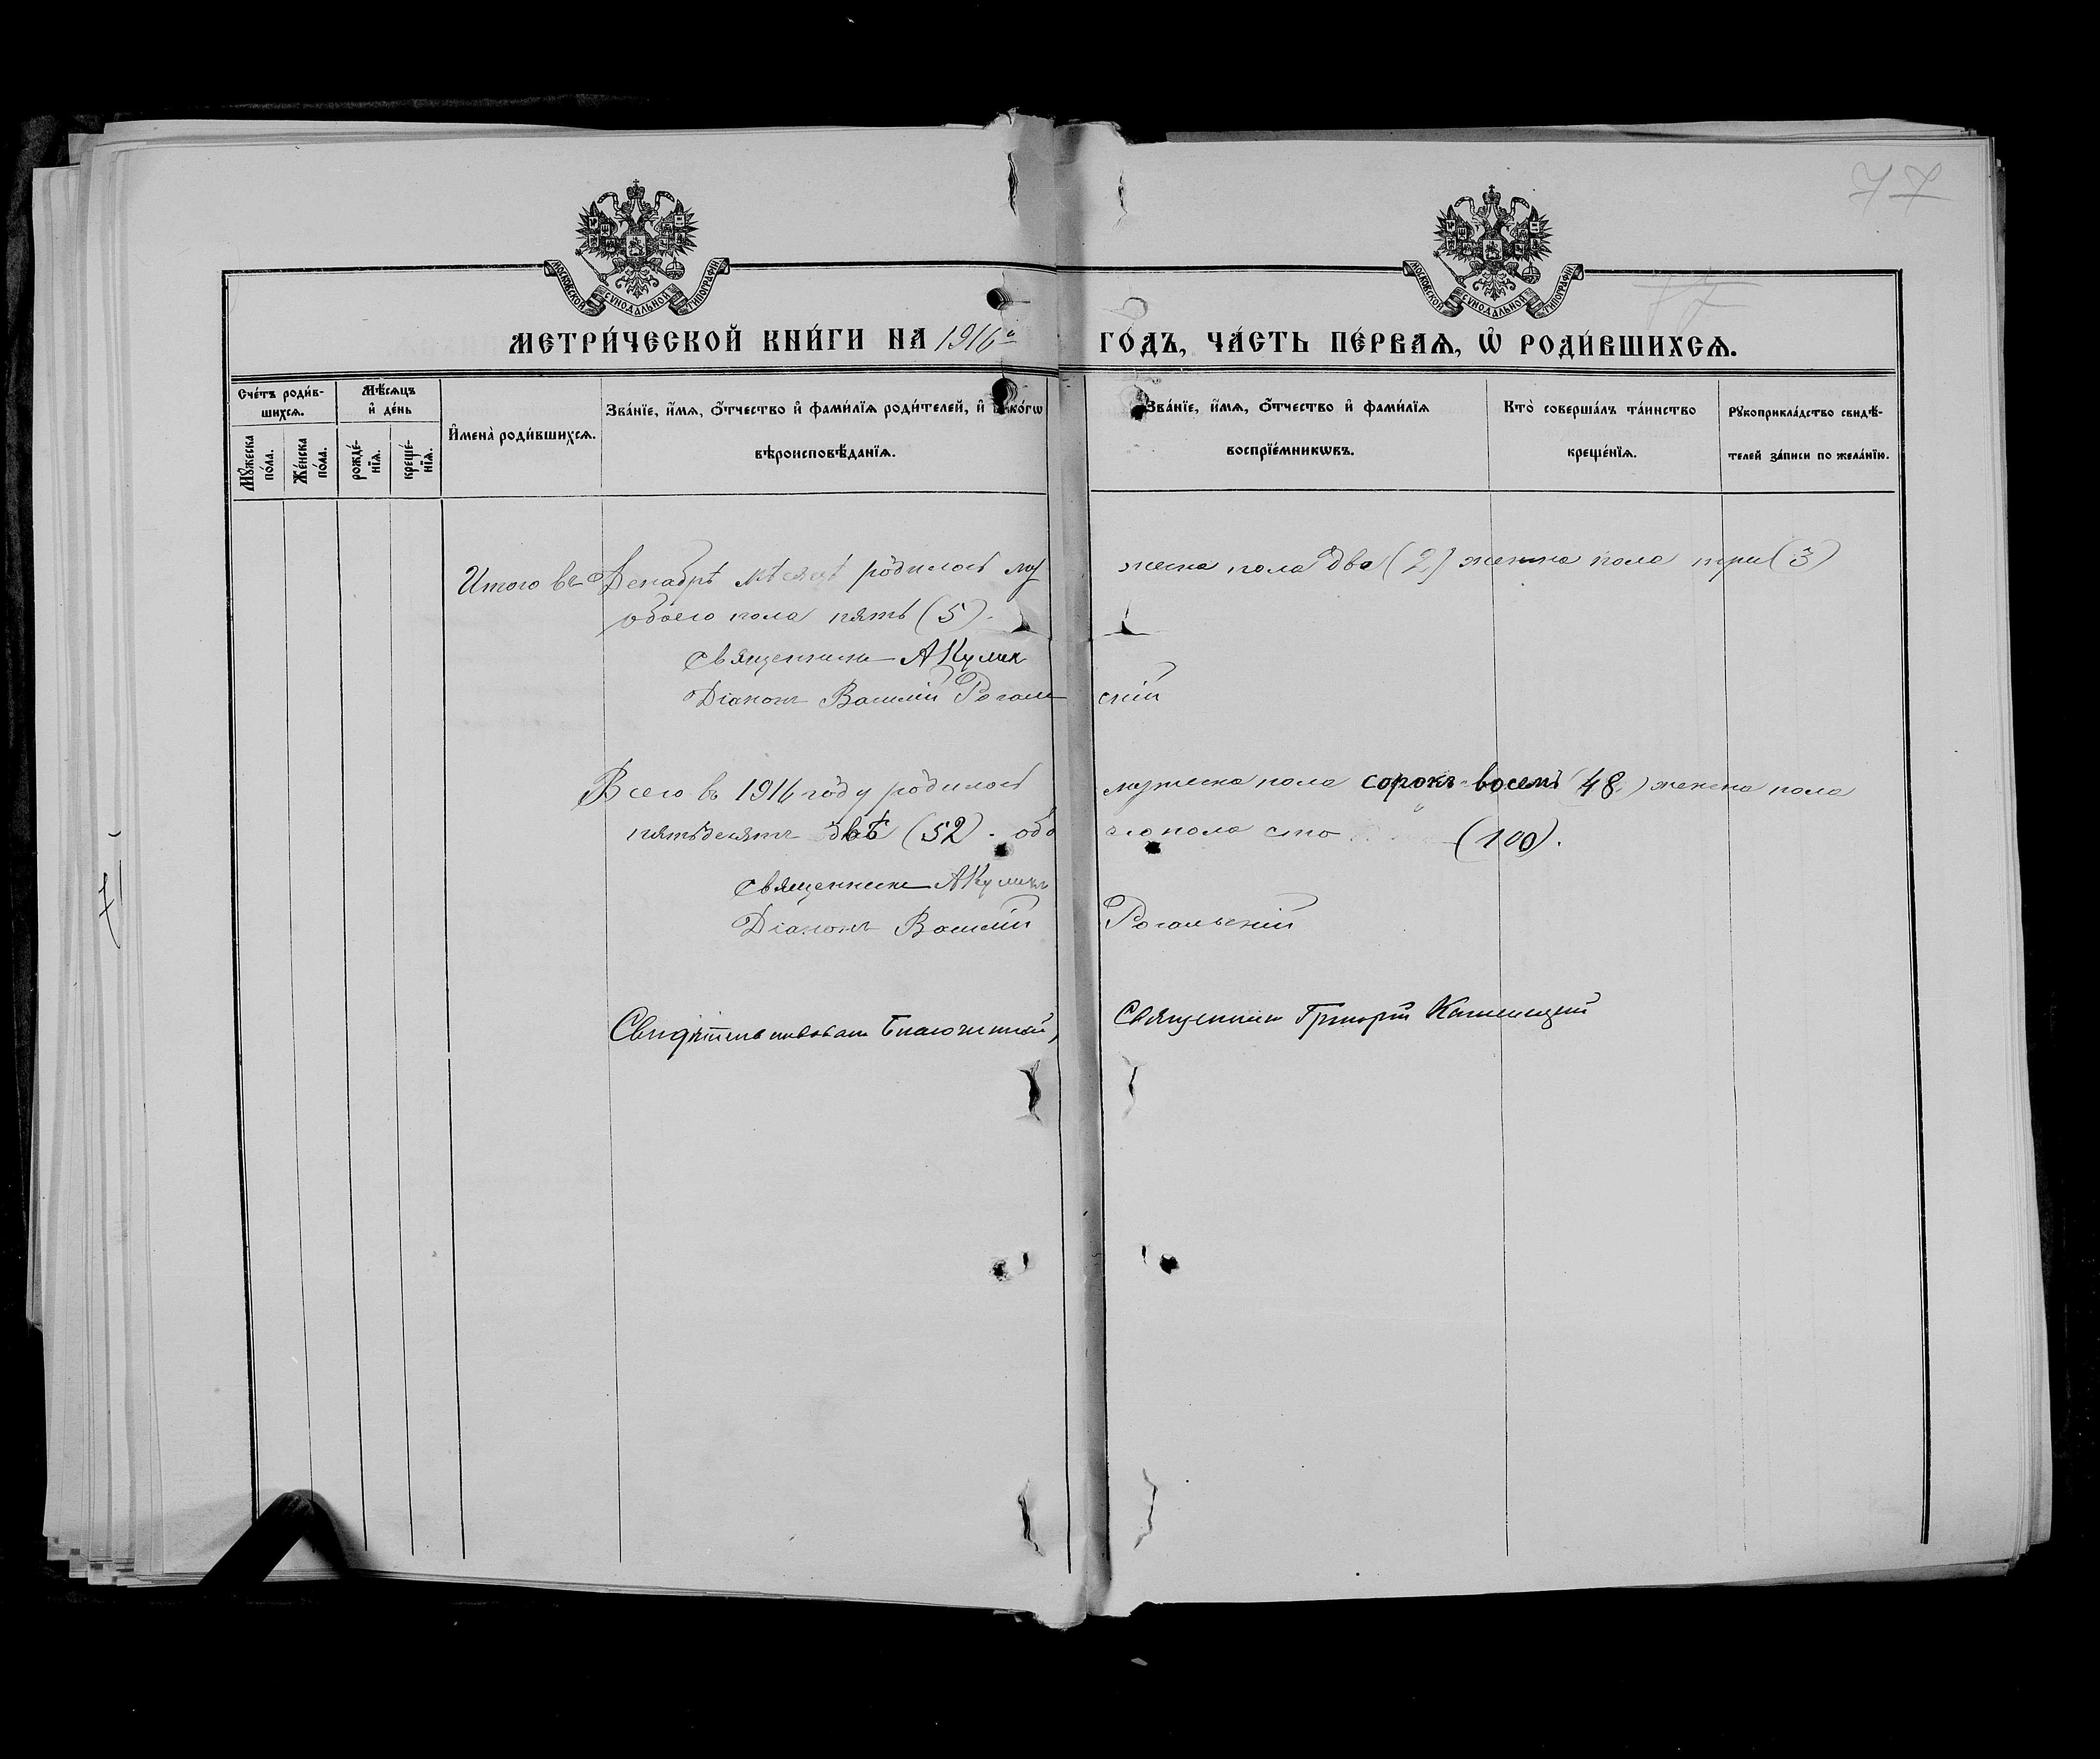 77
МОСКОВСКОЙ СѴНОДАЛЬНОЙ ТИПОГРАФІИ
МОСКОВСКОЙ СѴНОДАЛЬНОЙ ТИПОГРАФІИ
МЕТРИ́ЧЕСКОЙ КНИ́ГИ НА 1916й ГО́ДЪ, ЧА́СТЬ ПЕ́РВАѦ, Ѿ РОДИ́ВШИХСѦ.
Сче́тъ роди́в-
шихсѧ.
Мꙋ́жеска
по́ла.
Же́нска
по́ла.
Мѣ́сѧцъ
и҆ де́нь
рожде́-
нїѧ.
креще́-
нїѧ.
И҆мена̀ роди́вшихсѧ.
Зва́нїе, и҆́мѧ, ѻ҆́тчество и҆ фами́лїѧ роди́телей, и҆ како́гѡ
вѣроисповѣ́данїѧ.
Зва́нїе, и҆́мѧ, ѻ҆́тчество и҆ фами́лїѧ
воспрїе́мникѡвъ.
Кто̀ соверша́лъ та́инство
креще́нїѧ.
Рꙋкоприкла́дство свидѣ́-
телей за́писи по жела́нїю.
Итого въ Декабрѣ мѣсяцѣ родилось мужеска пола два (2) женска пола три (3)
обоего пола пять (5).
Священникъ А Кулик
Діаконъ Василій Рогальскій
Всего въ 1916 году родилось мужеска пола сорокъ-восемь (48) женска пола
пятьдесятъ двѣ (52). обоего пола сто (100).
Священникъ А Куликъ
Діаконъ Василій Рогальскій
Свидѣтельствовалъ Благочинный, Священникъ Григорій